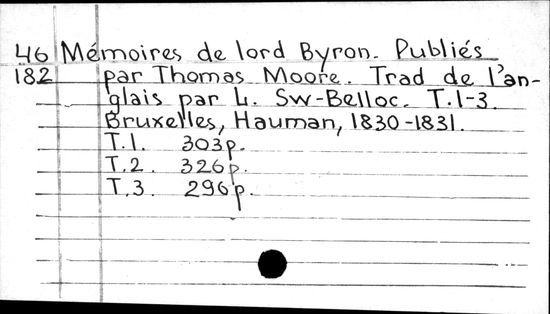 46 Mémoires de lord Byron. Publiés
182 par Thomas Moore. Trad de l'an-
glais par L. Sw-Belloc. T.1-3.
Bruxelles, Hauman, 1830-1831.
T.1. 303p.
T.2. 326p.
T.3. 296p.